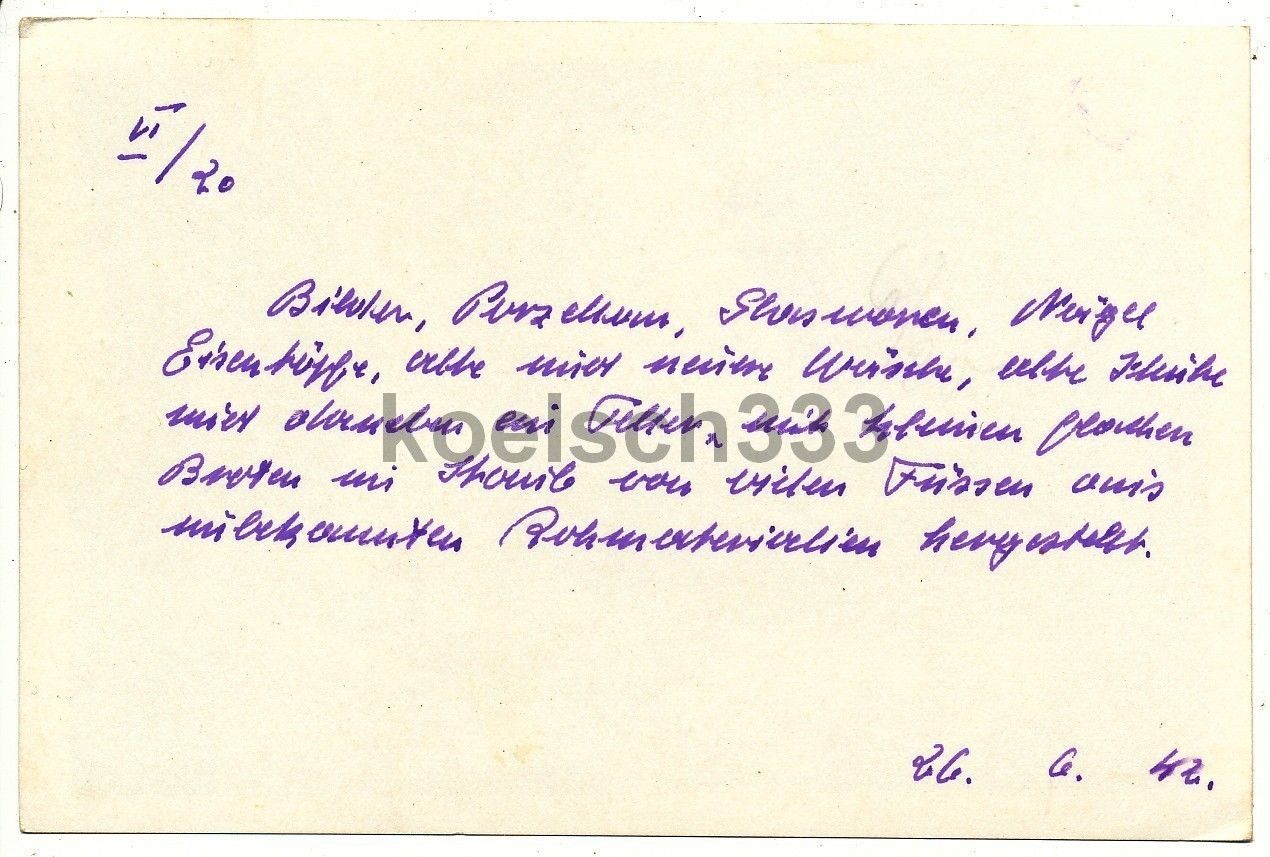 VI/20
Bilder, Porzellan, Glaswaren, Nägel
Eisentöpfe, alte und neue Wäsche, alte Schuhe
und daneben ein mit kleinen flachen
Broten im Staub von vielen Füssen aus
unbekannten Rohmaterialien hergestellt.
koelsch333
26. 6. 42.